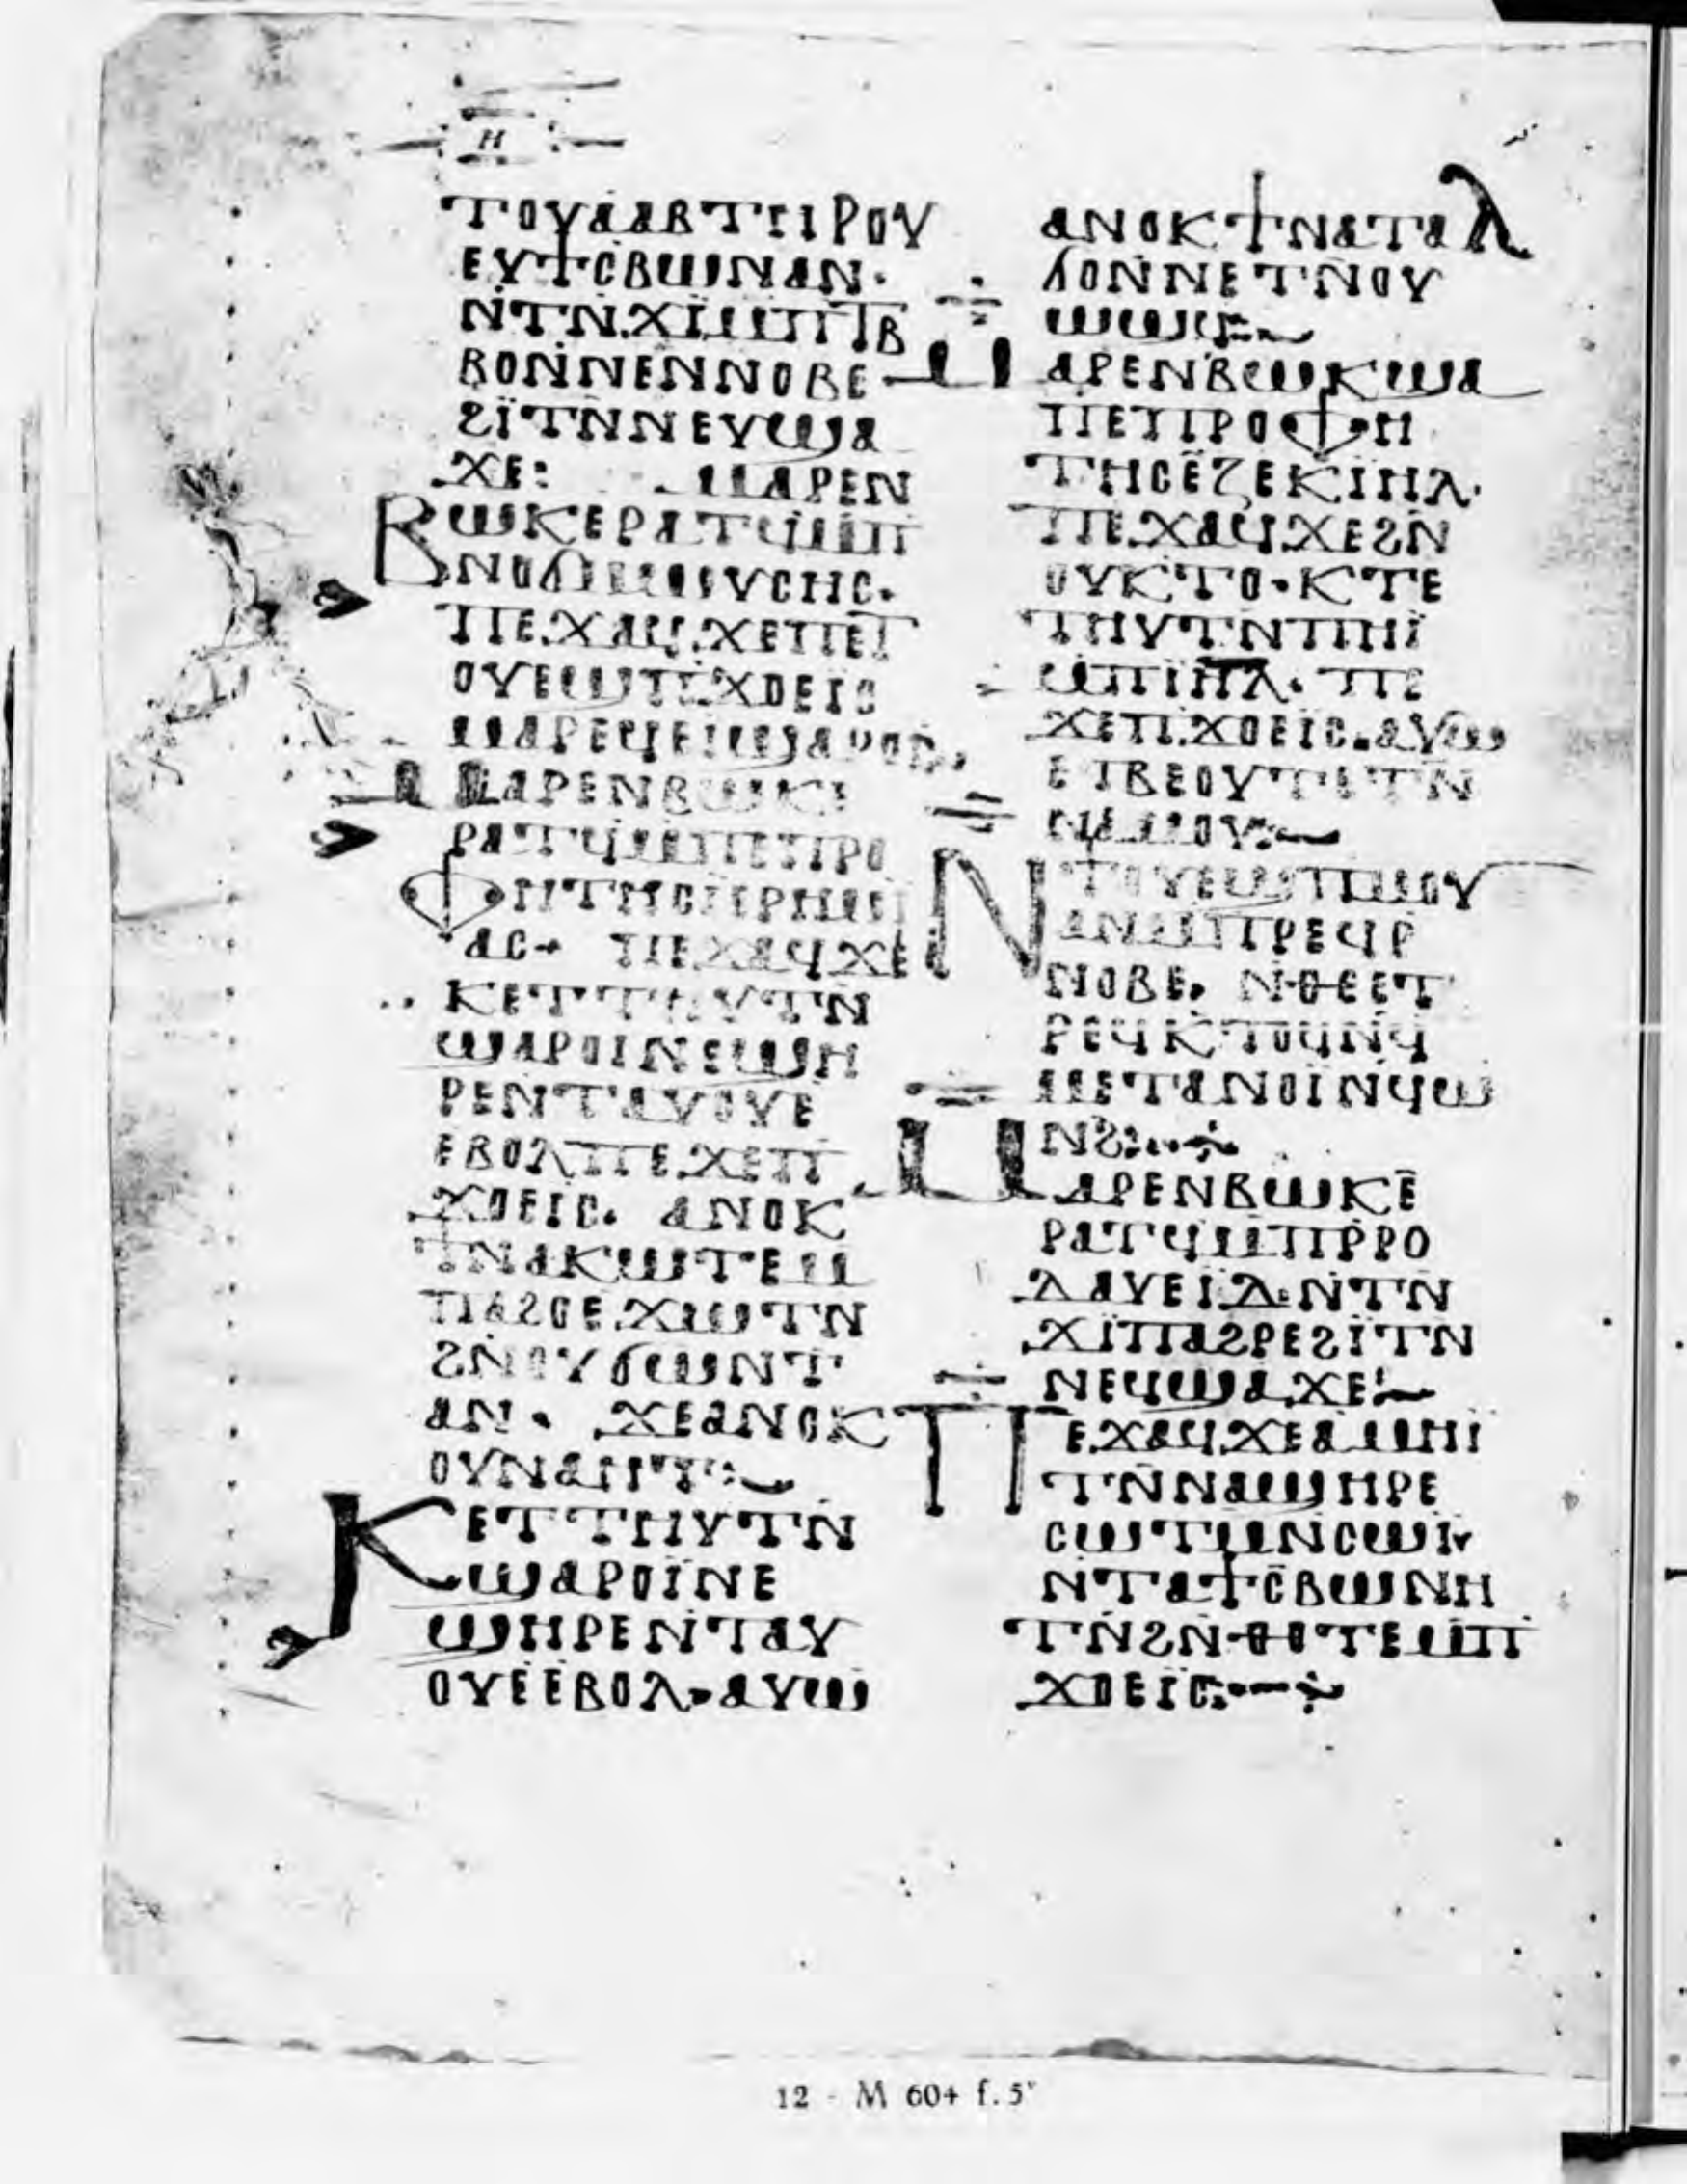 ⲏ
ⲧⲟⲩⲁⲁⲃⲧⲏⲣⲟⲩ
ⲉⲩϯⲥⲃⲱⲛⲁⲛ·
ⲛ̇ⲧⲛ̇ϫⲓ̈ⲙⲡⲧⲃ
ⲃⲟⲛ̇ⲛⲉⲛⲛⲟⲃⲉ
ϩⲓ̈ⲧⲛ̇ⲛⲉⲩϣⲁ
ϫⲉ: ⲙⲁⲣⲉⲛ
ⲃⲱⲕⲉⲣⲁⲧϥⲙⲡ
ⲛⲟϭⲙⲱⲩⲥⲏⲥ·
ⲡⲉϫⲁϥϫⲉⲡⲉⲧ
ⲟⲩⲉϣⲡϫⲟⲉⲓⲥ
ⲙⲁⲣⲉϥⲉⲓϣⲁⲣⲟⲓ̈
ⲙⲁⲣⲉⲛⲃⲱⲕⲉ
ⲣⲁⲧϥⲙⲡⲉⲡⲣⲟ
ⲫⲏⲧⲏⲥⲓ̈ⲉⲣⲏⲙⲓ
ⲁⲥ· ⲡⲉϫⲁϥϫⲉ
ⲕⲉⲧⲧⲏⲩⲧⲛ̇
ϣⲁⲣⲟⲓⲛⲉϣⲏ
ⲣⲉⲛⲧⲁⲩⲟⲩⲉ
ⲉⲃⲟⲗⲡⲉϫⲉⲡ
ϫⲟⲉⲓⲥ· ⲁⲛⲟⲕ
ϯⲛⲁⲕⲱⲧⲉⲙ
ⲡⲁϩⲟⲉϫⲱⲧⲛ
ϩⲛ̇ⲟⲩϭⲱⲛⲧ
ⲁⲛ· ϫⲉⲁⲛⲟⲕ
ⲟⲩⲛⲁⲏⲧ:
ⲕⲉⲧⲧⲏⲩⲧⲛ̇
ϣⲁⲣⲟⲓ̈ⲛⲉ
ϣⲏⲣⲉⲛⲧⲁⲩ
ⲟⲩⲉⲉⲃⲟⲗ·ⲁⲩⲱ
ⲁⲛⲟⲕϯⲛⲁⲧⲁⲗ
ϭⲟⲛ̇ⲛⲉⲧⲛ̇ⲟⲩ
ⲱϣϥ:
ⲙⲁⲣⲉⲛⲃⲱⲕϣⲁ
ⲡⲉⲡⲣⲟⲫⲏ
ⲧⲏⲥⲉ̈ⲍⲉⲕⲓ̈ⲏⲗ·
ⲡⲉϫⲁϥϫⲉϩⲛ̇
ⲟⲩⲕⲧⲟ·ⲕⲧⲉ
ⲧⲏⲩⲧⲛ̇ⲡⲏⲓ̈
ⲙⲡⲓⲏ̅ⲗ̅· ⲡⲉ
ϫⲉⲡϫⲟⲉⲓⲥ·ⲁⲩⲱ
ⲉⲧⲃⲉⲟⲩⲧⲉⲧⲛ̇
ⲛⲁⲙⲟⲩ:
ⲛ̇ϯⲟⲩⲉϣⲡⲙⲟⲩ
ⲁⲛⲙⲡⲣⲉϥⲣ
ⲛⲟⲃⲉ· ⲛⲑⲉⲉⲧ
ⲣⲉϥⲕⲧⲟϥⲛ̇ϥ
ⲙⲉⲧⲁⲛⲟⲓ̈ⲛϥⲱ
ⲛϩ:
ⲙⲁⲣⲉⲛⲃⲱⲕⲉ̄
ⲣⲁⲧϥⲙⲡⲣ̇ⲣⲟ
ⲇⲁⲩⲉⲓ̈ⲇ·ⲛ̇ⲧⲛ̇
ϫⲓ̈ⲡⲁϩⲣⲉϩⲓ̈ⲧⲛ
ⲛⲉϥϣⲁϫⲉ:
ⲡⲉϫⲁϥϫⲉⲁⲙⲏⲓ
ⲧⲛ̇ⲛⲁϣⲏⲣⲉ
ⲥⲱⲧⲙⲛⲥⲱⲓ̈
ⲛ̇ⲧⲁϯⲥⲃⲱⲛⲏ
ⲧⲛ̇ϩⲛ̇ⲑⲟⲧⲉⲙⲡ
ϫⲟⲉⲓⲥ:
12 - M 604 f. 5ᵛ